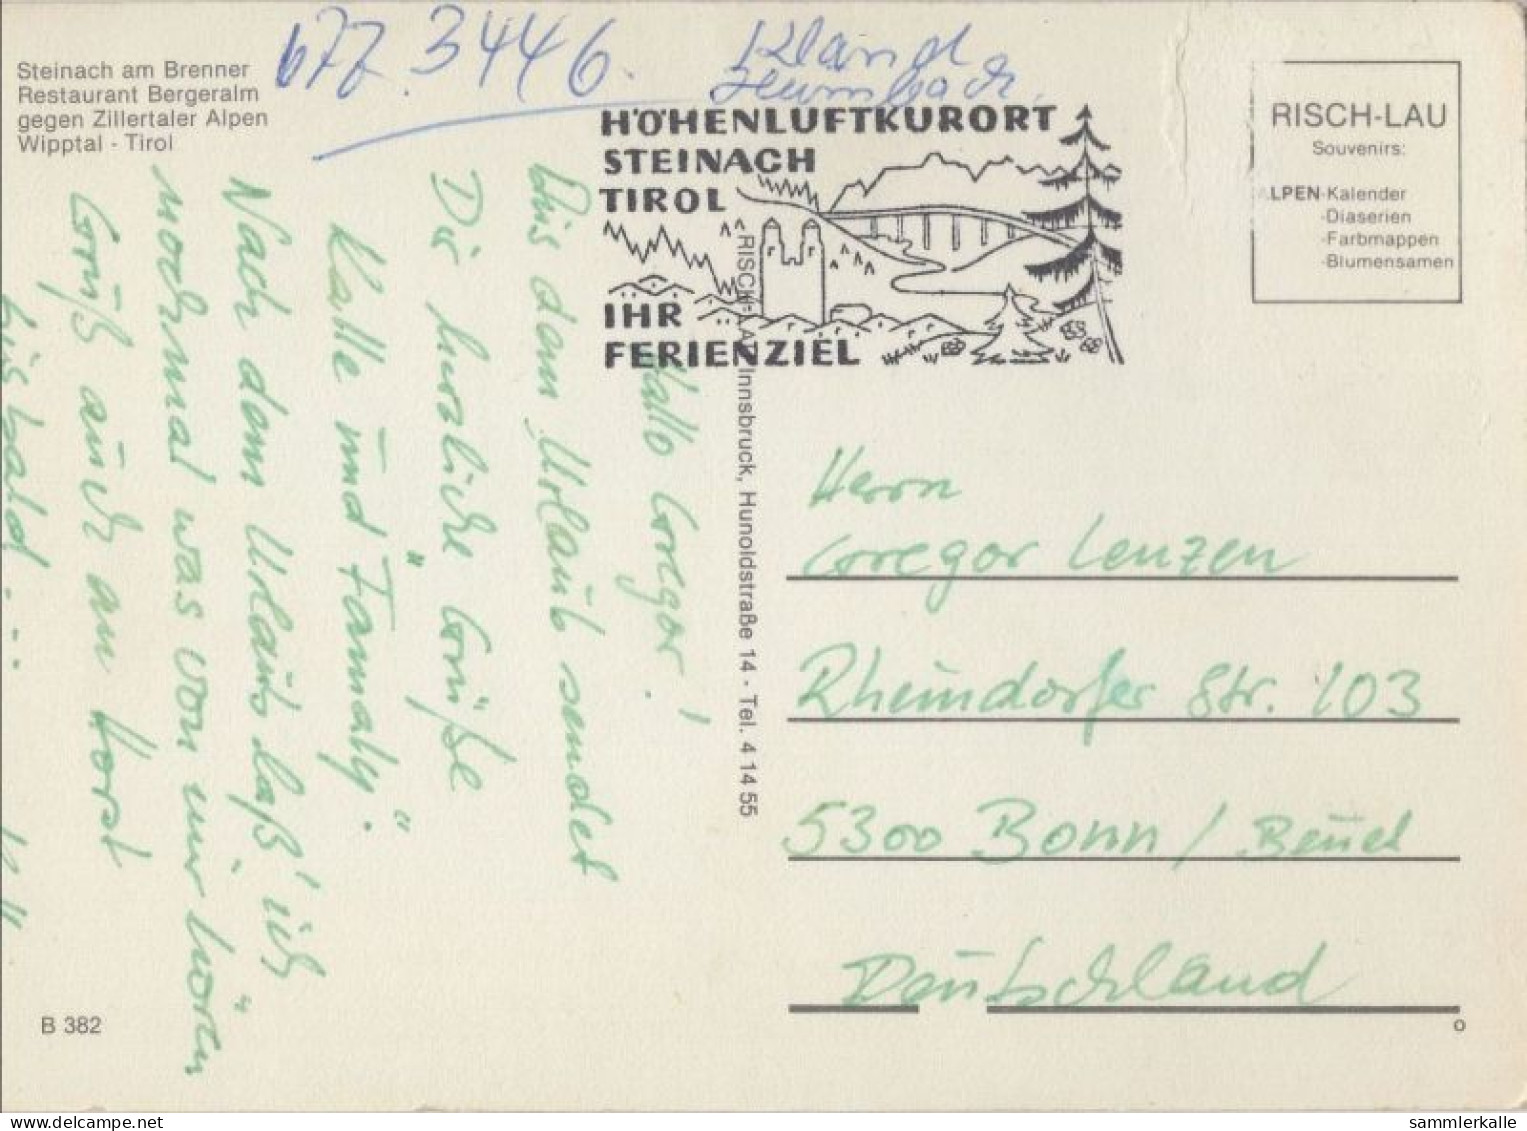 Steinach am Brenner
Restaurant Bergeralm
gegen Zillertaler Alpen
Wipptal - Tirol
677.3446.
HÖHENLUFTKURORT
STEINACH
TIROL
IHR
FERIENZIEL
RISCH-LAU
Souvenirs:
ALPEN-Kalender
-Diaserien
-Farbmappen
-Blumensamen
Hallo Gregor!
aus dem Urlaub sendet
Dir herzliche Grüße
Kalle und "Fammaly".
Nach dem Urlaub laß' ich
nochmal was von mir hören
Gruß auch an Horst
bis bald ...
RISCH-LAU, Innsbruck, Hunoldstraße 14 - Tel. 4 14 55
Herrn
Gregor Lenzen
Rheindorfer Str. 103
5300 Bonn / Beuel
Deutschland
B 382
delcampe.net
sammlerkalle